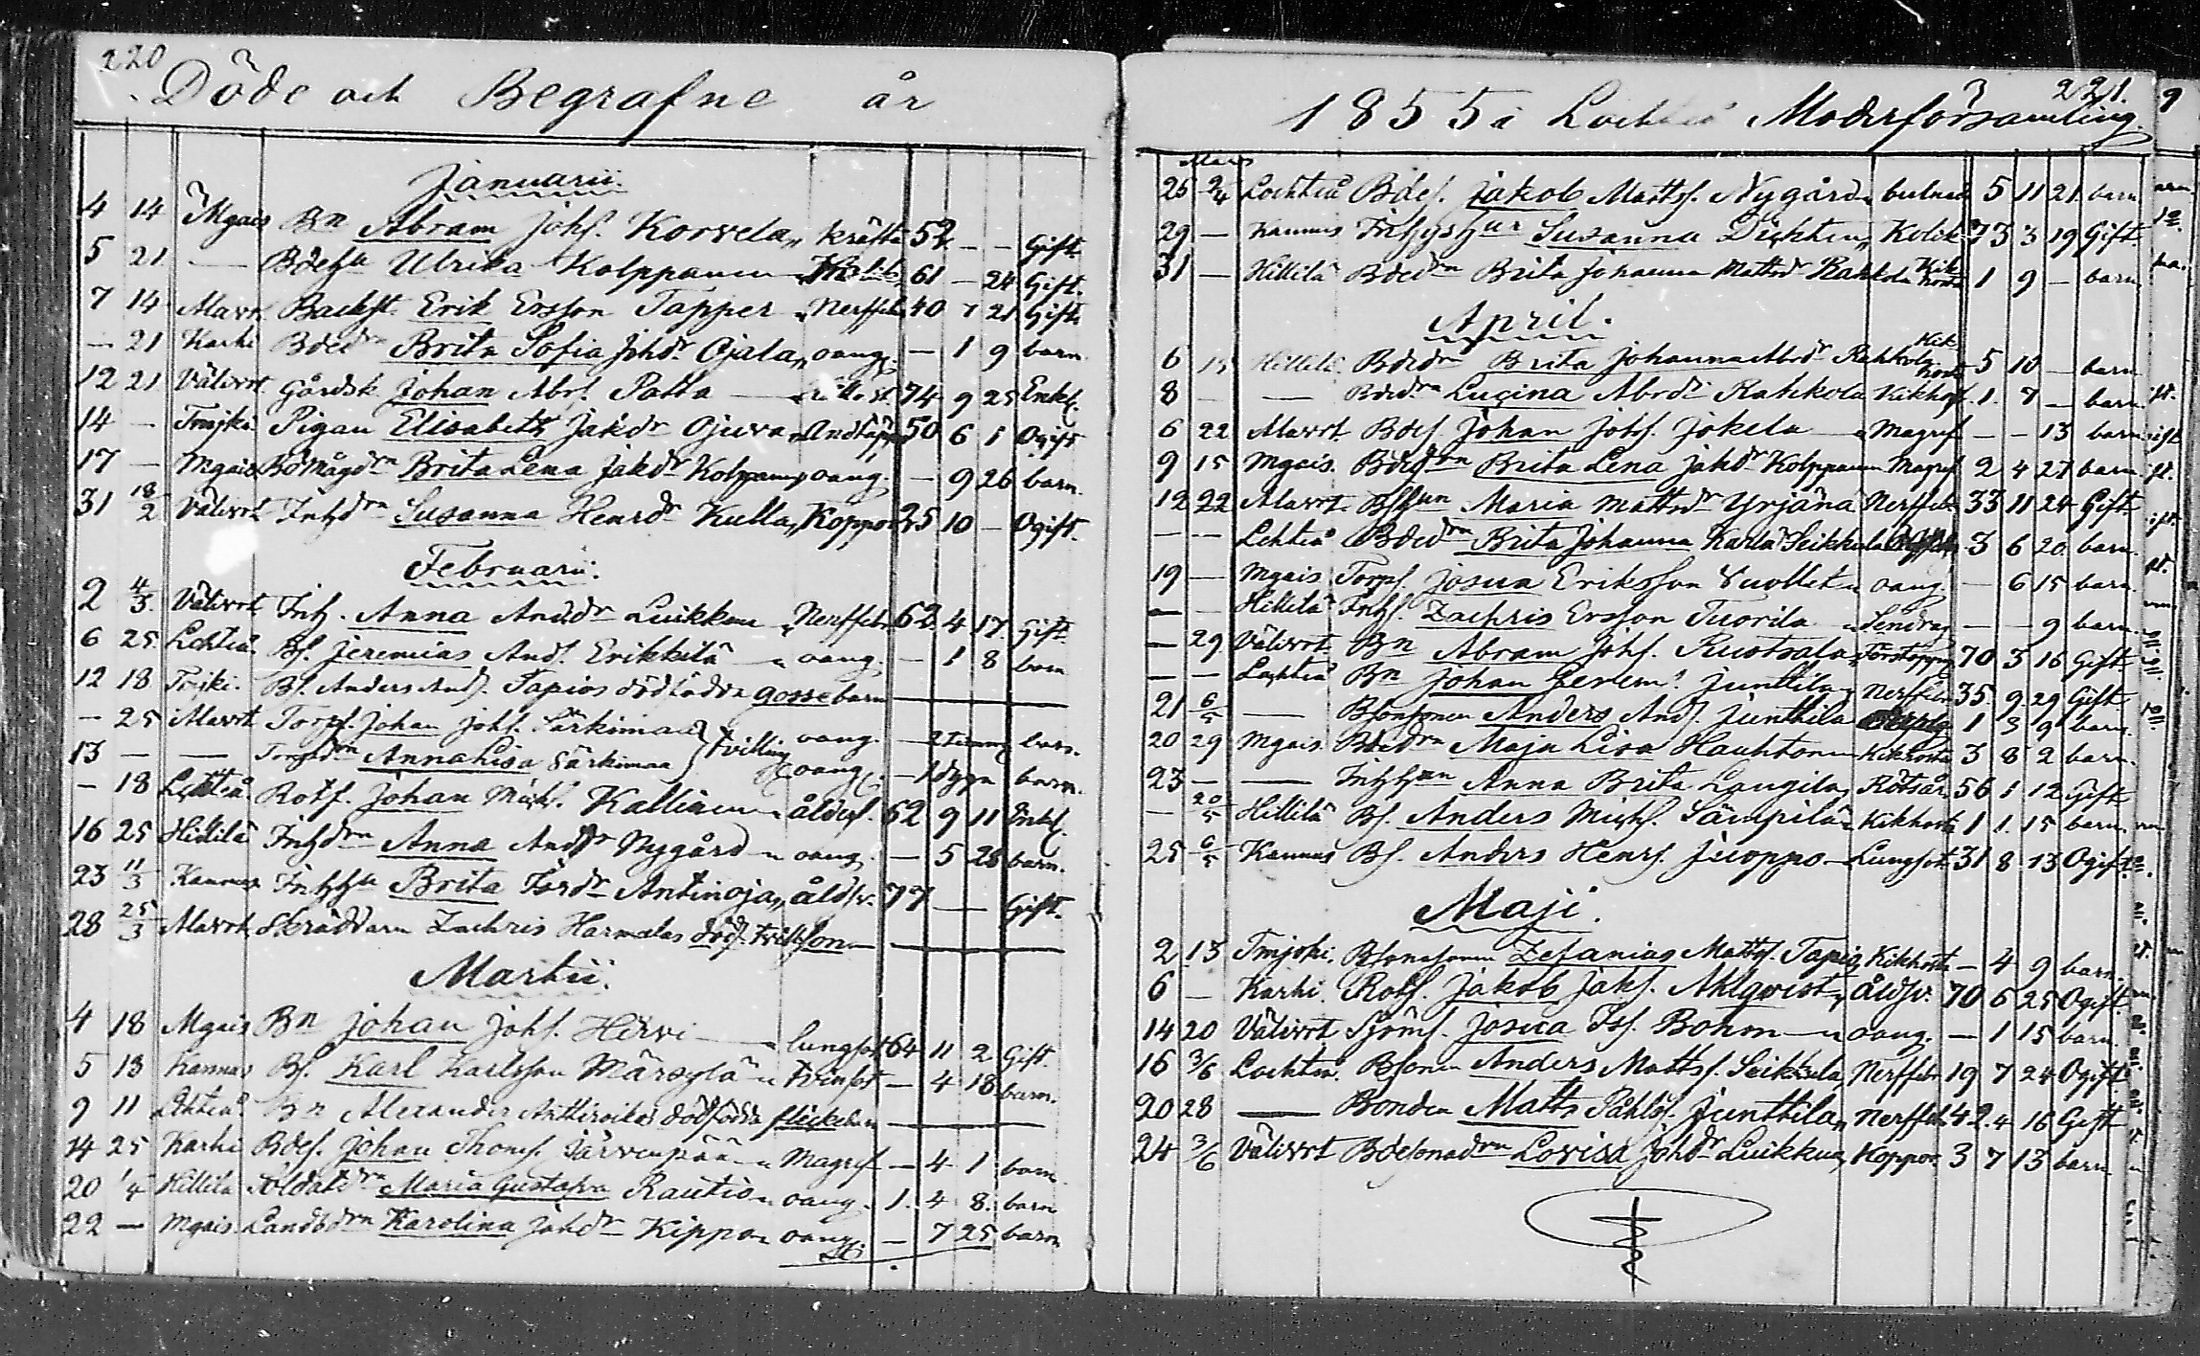 220
Döde och Begrafne år
Januarii.
4 14 Mgais Bn Abram Johs. Korvela kräfta 52 — — Gift.
5 21 — Bdehu Ulrika Kolppanen 61 — 24 Gift.
7 14 Mavrt. Backst. Erik Ersson Tapper Nerffeb. 40 7 21 Gift
— 21 Karhi Bdedrn Brita Sofia Johdr Ojala oang. — 1 9 barn
12 21 Välivrt Gårdsk Johan Abrs. Patta 74 9 25 Enkl.
14 — Tmjki Pigan Elisabeth Jakdr Ojuva Andtäppa 50 6 1 Ogift
17 — Mgais Bdmågdrn Brita Lena Jakdr Kolpanen oang. — 9 26 barn.
31 18/2 Välivrt Inhdrn Susanna Henrdr Kulla Koppor 25 10 — Ogift.
Februarii.
2 4/3. Välivrt Inh. Anna Andsdr Luikkune Nerffeb. 62 4 17 Gift
6 25 Lchteå Bs. Jeremias Ands. Erikkilä oang. — 1 8 barn
12 18 Tmjki. Bs. Anders Ands. Tapios dödfödda gossebarn
— 25 Mavrt Torps. Johan Johs. Särkimaa } tvilling oang. — 2 timm barn.
13 — — Torpdrn Anna Lisa Särkimaa oang. — 1 dygn barn.
— 18 Lchteå. Rotf. Johan Mick. Kallinen ålderd. 62 9 11 Enkl.
16 25 Hillilä Inhdrn Anna Andsdr Nygård oang. — 5 25 barn.
23 11/3 Kannus Inhhu Brita Isrdr Antinoja åldsv. 77 — — Gift.
28 25/3 Mavrt. Skräddarn Zachris Harmalas död. tvill son
Martii.
4 18 Mgais Bn Johan Johs. Hirvi lungsot 64 11 2 Gift.
5 13 Kannus Bs. Karl Karlsson Märsylä tvinsot — 4 18 barn.
9 11 Lchteå Bn Alexander Anttiroikas dödfödda flickebarn
14 25 Karhi Bdes. Johan Thoms. Järvenpää Magref — 4 1 barn
20 1/4 Hillilä Soldatdrn Maria Gustafva Rautio oang. 1. 4 8. barn
22 — Mgais. Landbdrn Karolina Jakdr Kippo oang. — 7 25 barn
221.
1855 i Lochteå Moderförsamling.
Mars
25 2/4 Lochteå Bdes. Jakob Matts. Nygård bulnad 5 11 21 barn
29 — Kannus Inhyshur Susanna Dickten Kolik 73 3 19 Gift
31 — Hillilä Bdedrn Brita Johanna Mattsdr Rahkola Kik hosta 1 9 — barn
April.
6 15 Hillilä Bdedrn Brita Johanna Abrdr Rahkola Kik hosta — 5 10 — barn
8 — — Bdedrn Lucina Abrdr Rahkola Kikhosta 1. 7 — barn
6 22 Mavrt. Bdes. Johan Johs. Jokela Magref — — 13 barn
9 15 Mgais. Bdedrn Brita Lena Jakdr Kolppanen Magref 2 4 27 barn
12 22 Mavrt. Bshun Maria Mattsdr Yrjänä Nerffeb. 33 11 24 Gift
— — Lchteå Bdedrn Brita Johanna Karlsdr Seikkula 3 6 20 barn.
19 — Mgais Torps. Josua Eriksson Vuollet oang. — 6 15 barn.
— — Hillilä Inhs. Zachris Ersson Tuorila Sendrag — — 9 barn.
— 29 Välivrt Bn Abram Johs. Ruotsala Förstoppng 70 3 16 Gift
— — Lochteå Bn Johan Jerems. Junttila Nerffeb. 35. 9. 29 Gift
21 6/5 — Bsonsonen Anders Ands. Junttila 1 3 9 barn.
20 29 Mgais. Bdedrn Maja Lisa Hauhtonen Kikhosta 3 8 2 barn.
23 — — Inhhun Anna Brita Langila Rötsår 56 1 12 Gift
— 20/5 Hillilä Bs. Anders Micks. Sämpilä Kikhosta 1 1. 15 barn
25 6/5 Kannus Bs. Anders Henrs. Juoppo Lungsot 31 8 13 Ogift.
Maji.
2 13 Tmjoki. Bsonasonen Zefanias Matts. Tapio Kikhosta — 4 9 barn.
6 — Karhi. Rotf. Jakob Jaks. Ahlqwist åldsv. 70 6 25 Ogift.
14 20 Välivrt Sjöms. Josua Iss. Bohm oang. — 1 15 barn.
16 3/6 Lochteå. Bsonen Anders Matts. Seikkula Nerffeb 19 7 24 Ogift
20 28 — Bonden Matts Påhls. Junttila Nerffeb. 42. 4 16 Gift
24 3/6 Välivrt Bdesonadrn Lovisa Johdr Luikkus Koppor. 3 7 13 barn